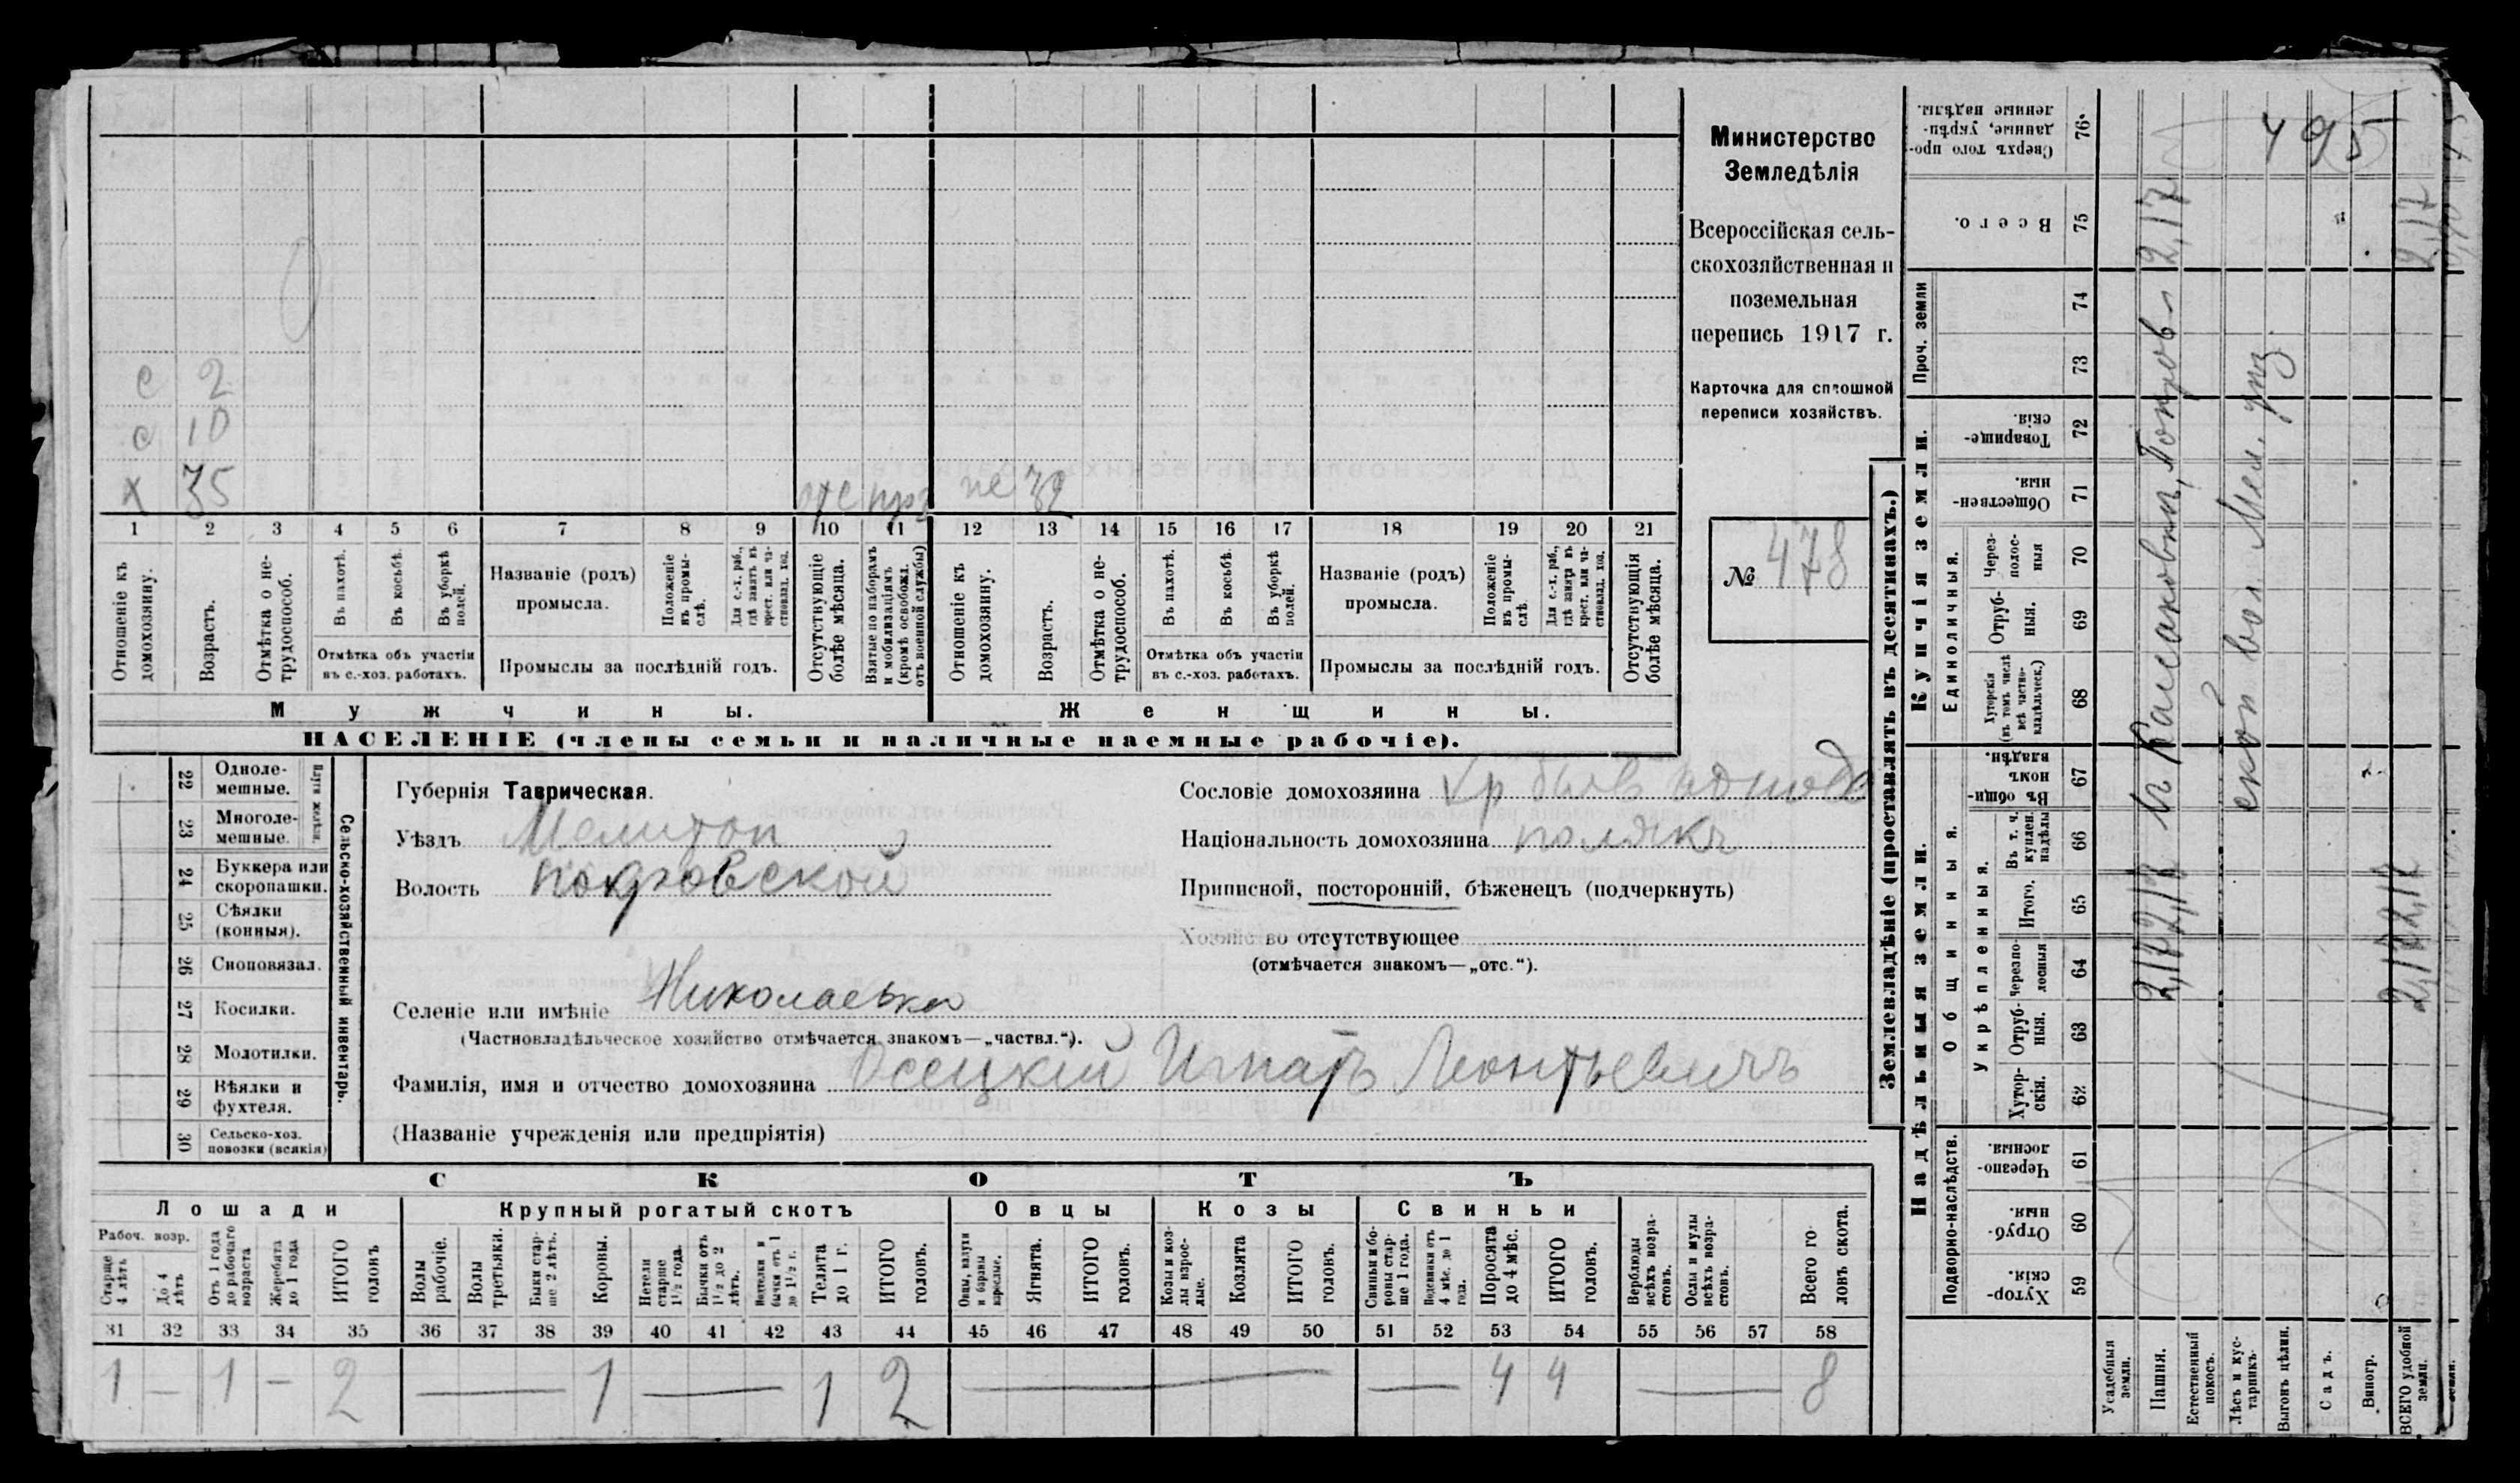 Министерство
Земледѣлія
Всероссійская сель-
скохозяйственная и
поземельная
перепись 1917 г.
Карточка для сплошной
переписи хозяйствъ.
№ 478
с 2
с 10
х 35
не 32
1 2 3 4 5 6 7 8 9 10 11 12 13 14 15 16 17 18 19 20 21
Отношеніе къ домохозяину.
Возрастъ.
Отмѣтка о не-трудоспособ.
Въ пахотѣ.
Въ косьбѣ.
Въ уборкѣ полей.
Отмѣтка объ участіи
въ с.-хоз. работахъ.
Названіе (родъ)
промысла.
Положеніе въ промы-слѣ.
Для с.-х. раб., гдѣ занятъ въ крест. или ча-стновлад. хоз.
Промыслы за послѣдній годъ.
Отсутствующіе болѣе мѣсяца.
Взятые по наборамъ и мобилизаціямъ (кромѣ освобожд. отъ военной службы)
Отношеніе къ домохозяину.
Возрастъ.
Отмѣтка о не-трудоспособ.
Въ пахотѣ.
Въ косьбѣ.
Въ уборкѣ полей.
Отмѣтка объ участіи
въ с.-хоз. работахъ.
Названіе (родъ)
промысла.
Положеніе въ промы-слѣ.
Для с.-х. раб., гдѣ занята въ крест. или ча-стновлад. хоз.
Промыслы за послѣдній годъ.
Отсутствующія болѣе мѣсяца.
Мужчины.
Женщины.
НАСЕЛЕНІЕ (члены семьи и наличные наемные рабочіе).
Сельско-хозяйственный инвентарь.
22 Одноле-мешные.
23 Многоле-мешные.
24 Буккера или скоропашки.
25 Сѣялки (конныя).
26 Сноповязал.
27 Косилки.
28 Молотилки.
29 Вѣялки и фухтеля.
30 Сельско-хоз. повозки (всякія)
Губернія Таврическая.
Уѣздъ Мелитоп
Волость Покровской
Селеніе или имѣніе Николаевка
(Частновладѣльческое хозяйство отмѣчается знакомъ—„частвл.“).
Фамилія, имя и отчество домохозяина Осецкій Игнатъ Леонтьевичъ
(Названіе учрежденія или предпріятія)
Сословіе домохозяина кр бывъ
Національность домохозяина полякъ
Приписной, посторонній, бѣженецъ (подчеркнуть)
Хозяйство отсутствующее
(отмѣчается знакомъ—„отс.“).
СКОТЪ
Лошади
Крупный рогатый скотъ
Овцы
Козы
Свиньи
Рабоч. возр.
Старше 4 лѣтъ
До 4 лѣтъ
Отъ 1 года до рабочаго возраста
Жеребята до 1 года
ИТОГО головъ
Волы рабочіе.
Волы третьяки.
Быки стар-ше 2 лѣтъ.
Коровы.
Нетели старше 1½ года.
Бычки отъ 1½ до 2 лѣтъ.
Подтелки и бычки отъ 1 до 1½ г.
Телята до 1 г.
ИТОГО головъ.
Овцы, валухи и бараны взрослые.
Ягнята.
ИТОГО головъ.
Козы и коз-лы взрос-лые.
Козлята
ИТОГО головъ.
Свиньи и бо-ровы стар-ше 1 года.
Подсвинки отъ 4 мѣс. до 1 года.
Поросята до 4 мѣс.
ИТОГО головъ.
Верблюды всѣхъ возра-стовъ.
Ослы и мулы всѣхъ возра-стовъ.
Всего го-ловъ скота.
31 32 33 34 35 36 37 38 39 40 41 42 43 44 45 46 47 48 49 50 51 52 53 54 55 56 57 58
1 — 1 — 2 — 1 — 1 2 — — 4 4 — 8
Землевладѣніе (проставлять въ десятинахъ.)
Надѣльныя земли.
Купчія земли.
Проч. земли
Подворно-наслѣдств.
Общинныя.
Укрѣпленныя.
Единоличныя.
Хутор-скія. 59
Отруб-ныя. 60
Черезпо-лосныя 61
Хутор-скія. 62
Отруб-ныя. 63
Черезпо-лосныя 64
Итого. 65
Въ т. ч. куплен. надѣлы 66
Въ общи-номъ владѣн. 67
Хуторскія (въ томъ числѣ всѣ частно-владѣльческ.) 68
Отруб-ныя. 69
Через-полос-ныя 70
Обществен-ныя. 71
Товарище-скія. 72
73
74
Всего. 75
Сверхъ того про-данные, укрѣп-ленные надѣлы. 76
Усадебныя земли.
Пашня.
Естественный покосъ.
Лѣсъ и кус-тарникъ.
Выгонъ цѣлин.
Садъ.
Виногр.
ВСЕГО удобной земли.
2,17 2,17
2,17
ской вол. Мел. уѣз
495
2,17 2,17
2,17